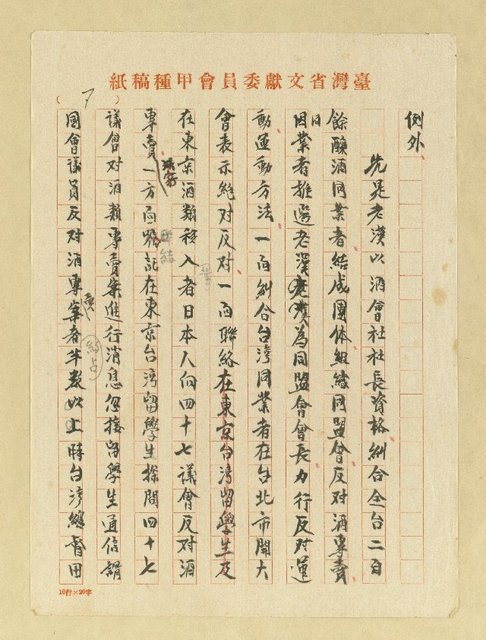 臺灣省文獻委員會甲種稿紙
7
例外
先是老漢以酒會社社長資格糾合全台二百
餘釀酒同業者結成團体組織同盟會反对酒專賣
因業者推選老漢為同盟會會長力行反对運
日
動運動方法一面糾合台湾同業者在台北市開大
會表示絶对反对一面聯絡在東京台湾留學生及
在東京酒類移入者日本人向四十七議會反对酒
專賣一方面 託在東京台湾留學生探問四十七
聯結
議會对酒類專賣案進行消息忽接留學生通信謂
國會議員反对酒專案者半数以上時台湾總督田
賣
10行×20字